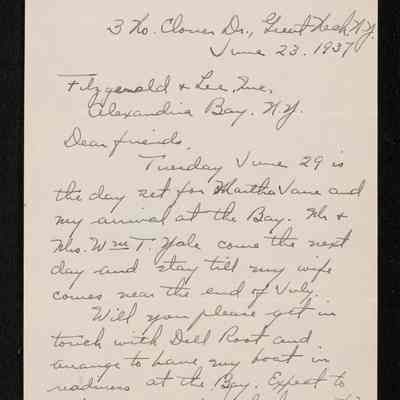 3 No. Clover Dr., Great Neck N.Y.
June 23. 1937
Fitzgerald & Lee, Inc,
Alexandria Bay. N.Y.
Dear friends,
Tuesday June 29 is
the day set for Martha Jane and
my arrival at the Bay. Mr &
Mrs. Wm T. Yale come the next
day and stay till my wife
comes near the end of July.
Will you please get in
touch with Dell Root and
arrange to have my boat in
readiness at the Bay. Expect to